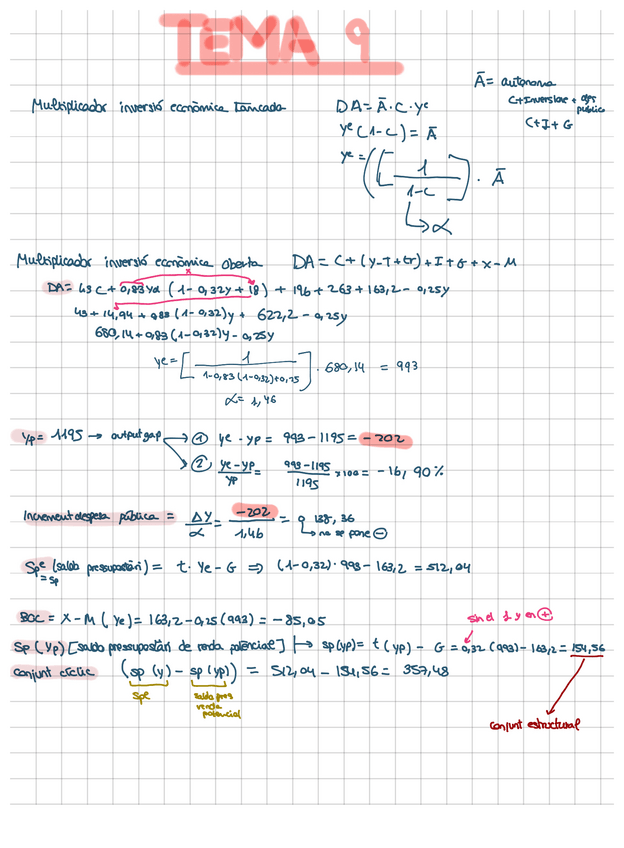 TEMA 9
Ā = autònoma
C+Inversions + dps públic
C+I+G
Multiplicador inversió econòmica tancada
DA = Ā · C · ye
ye (1-c) = Ā
ye = ([1/1-c]) · Ā
↳ α
Multiplicador inversió econòmica oberta DA = C + (y-T+tr) + I + G + x - M
x
DA = 49 C + 0,83yd (1-0,32y+18) + 196 + 263 + 163,2 - 0,25y
49 + 14,94 + 0,83 (1-0,32)y + 622,2 - 0,25y
680,14 + 0,83 (1-0,32)y - 0,25y
ye = [1/1-0,83(1-0,32)+0,25] · 680,14 = 993
α = 1,46
yp = 1195 → output gap → ① ye - yp = 993 - 1195 = -202
② ye-yp/yp = 993-1195/1195 × 100 = -16,90%
Increment despesa pública = Δy/α = -202/1,46 = 138,36
↳ no se pone ⊖
Spe (saldo pressupostàri) = t · ye - G ⇒ (1-0,32) · 993 - 163,2 = 512,04
= sp
BOC = X - M (ye) = 163,2 - 0,25 (993) = -85,05
sin el 1 y en ⊕
Sp (yp) [saldo pressupostàri de renda potencial] ↦ sp(yp) = t (yp) - G = 0,32 (993) - 163,2 = 154,56
conjunt cíclic (sp (y) - sp (yp)) = 512,04 - 154,56 = 357,48
spe
saldo pres
renda
potencial
conjunt estructural